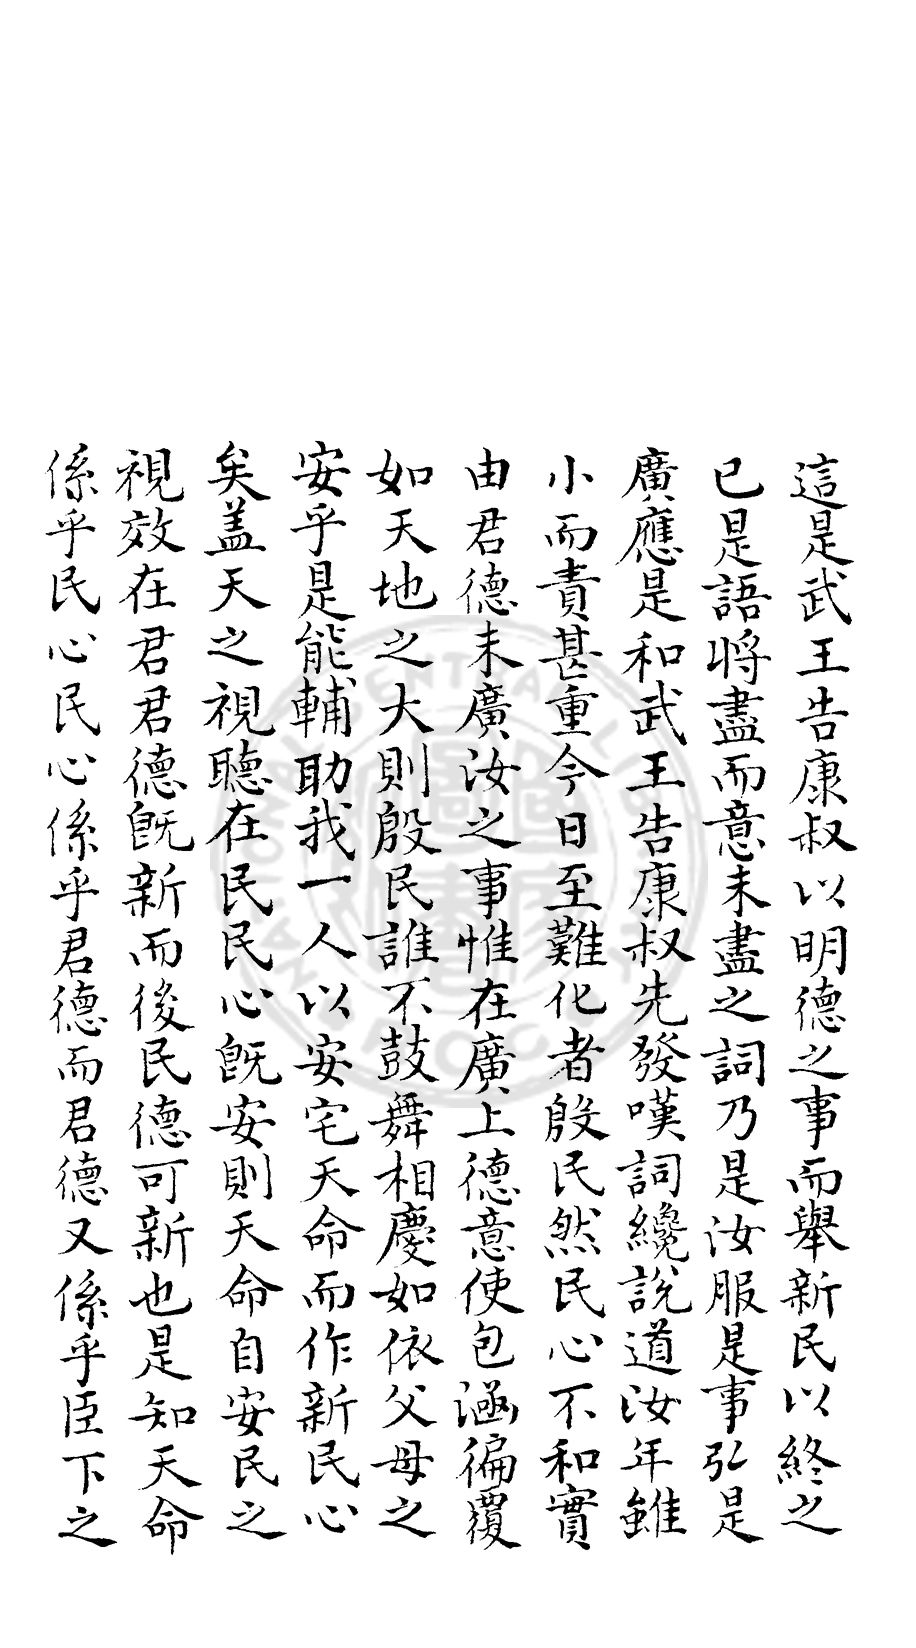 這是武王告康叔以明德之事而舉新民以終之
已是語將盡而意未盡之詞乃是汝服是事弘是
廣應是和武王告康叔先發嘆詞纔說道汝年雖
小而責甚重今日至難化者殷民然民心不和實
由君德未廣汝之事惟在廣上德意使包涵徧覆
如天地之大則殷民誰不鼓舞相慶如依父母之
安乎是能輔助我一人以安宅天命而作新民心
矣盖天之視聽在民民心既安則天命自安民之
視效在君君德既新而後民德可新也是知天命
係乎民心民心係乎君德而君德又係乎臣下之